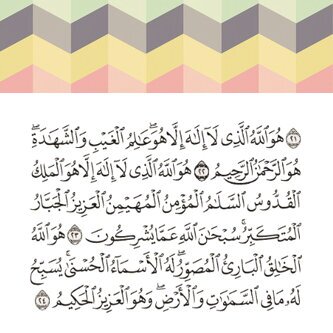 ۝٢١ هُوَ ٱللَّهُ ٱلَّذِي لَآ إِلَٰهَ إِلَّا هُوَۖ عَٰلِمُ ٱلۡغَيۡبِ وَٱلشَّهَٰدَةِۖ
هُوَ ٱلرَّحۡمَٰنُ ٱلرَّحِيمُ ۝٢٢ هُوَ ٱللَّهُ ٱلَّذِي لَآ إِلَٰهَ إِلَّا هُوَ ٱلۡمَلِكُ
ٱلۡقُدُّوسُ ٱلسَّلَٰمُ ٱلۡمُؤۡمِنُ ٱلۡمُهَيۡمِنُ ٱلۡعَزِيزُ ٱلۡجَبَّارُ
ٱلۡمُتَكَبِّرُۚ سُبۡحَٰنَ ٱللَّهِ عَمَّا يُشۡرِكُونَ ۝٢٣ هُوَ ٱللَّهُ
ٱلۡخَٰلِقُ ٱلۡبَارِئُ ٱلۡمُصَوِّرُۖ لَهُ ٱلۡأَسۡمَآءُ ٱلۡحُسۡنَىٰۚ يُسَبِّحُ
لَهُۥ مَا فِي ٱلسَّمَٰوَٰتِ وَٱلۡأَرۡضِۖ وَهُوَ ٱلۡعَزِيزُ ٱلۡحَكِيمُ ۝٢٤